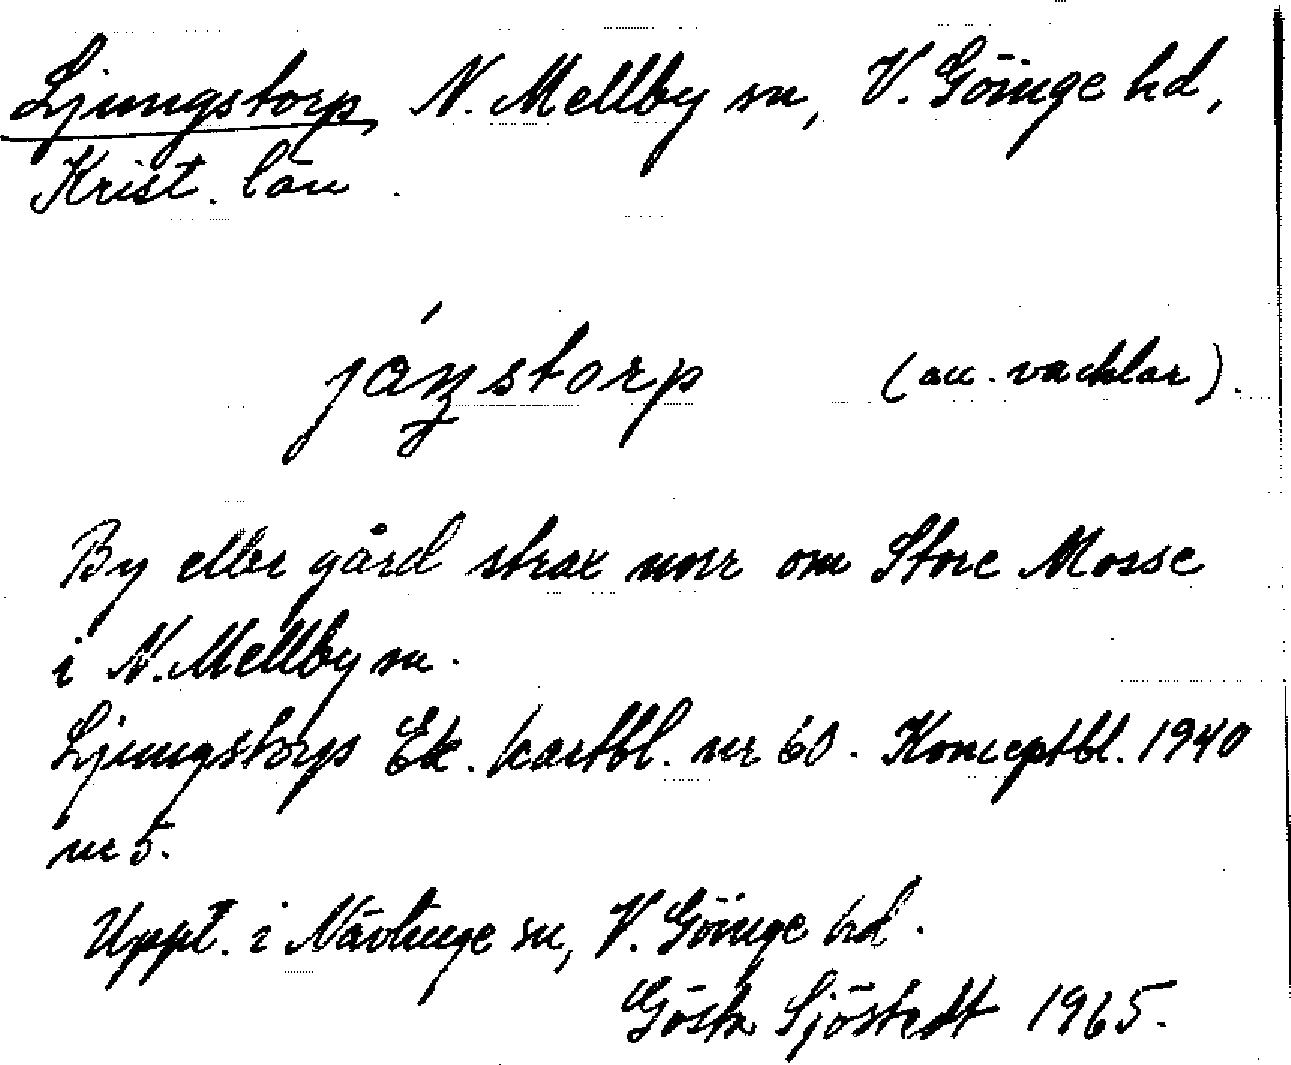 Ljungstorp, N. Mellby sn, V. Göinge hd,
Krist. län.
(acc. vacklar).
By eller gård strax norr om Store Mosse
i N. Mellby sn.
Ljungstorp Ek. kartbl. nr 60. Konceptbl. 1940
nr 5.
Uppt. i Nävlinge sn, V. Göinge hd.
Gösta Sjöstedt 1965.